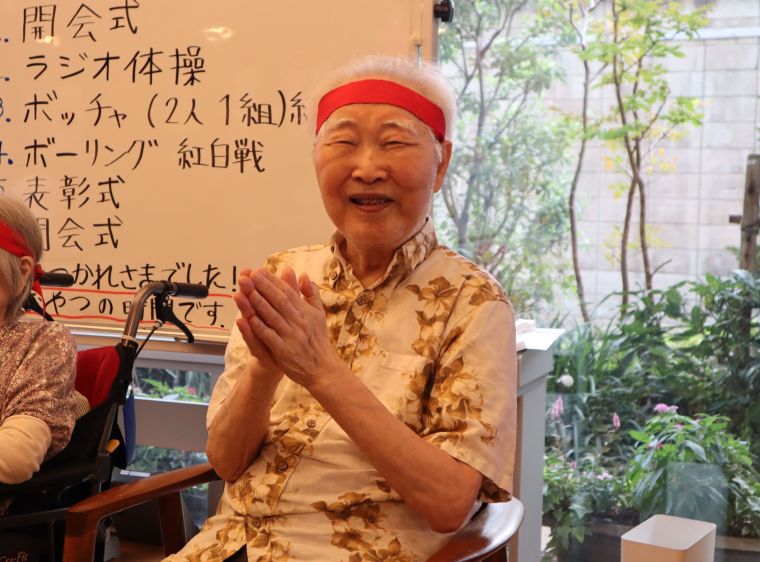 1. 開会式
2. ラジオ体操
3. ボッチャ(2人1組)紅
4. ボーリング 紅白戦
5. 表彰式
閉会式
つかれさまでした!
やつの時間です。